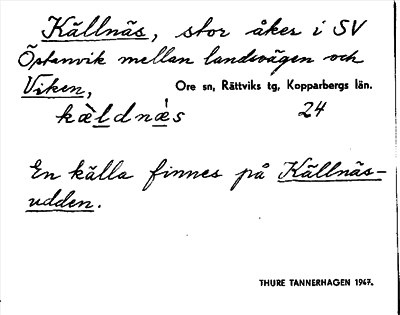 Källnäs, stor åker i SV
Östanvik mellan landsvägen och
Viken, Ore sn, Rättviks tg, Kopparbergs län.
kæ̀ldnæ̀s 24
En källa finnes på Källnäs-
udden.
THURE TANNERHAGEN 1947.